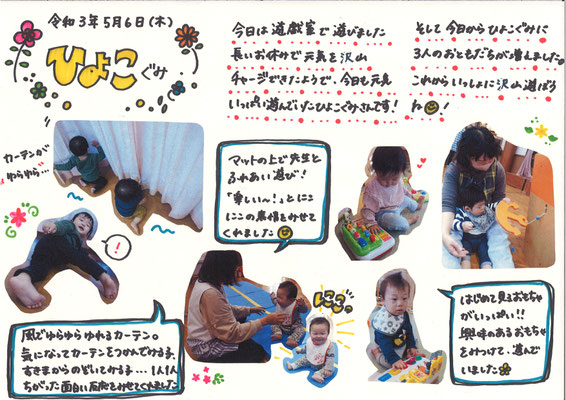 令和3年5月6日(木)
ひよこぐみ
今日は遊戯室で遊びました
長いお休みで元気を沢山
チャージできたようで、今日も元気
いっぱい遊んでいたひよこぐみさんです!
そして今日からひよこぐみに
3人のおともだちが増えました。
これからいっしょに沢山遊ぼう
ね
カーテンが
ゆらゆら…
!
マットの上で先生と
ふれあい遊び!
「楽しい〜!」とにこ
にこの表情をみせて
くれました
にこっ
風でゆらゆらゆれるカーテン。
気になってカーテンをつかんでみる子、
すきまからのぞいてみる子…1人1人
ちがった面白い反応をみせてくれました
はじめて見るおもちゃ
がいっぱい!!
興味のあるおもちゃ
をみつけて、遊んで
いました